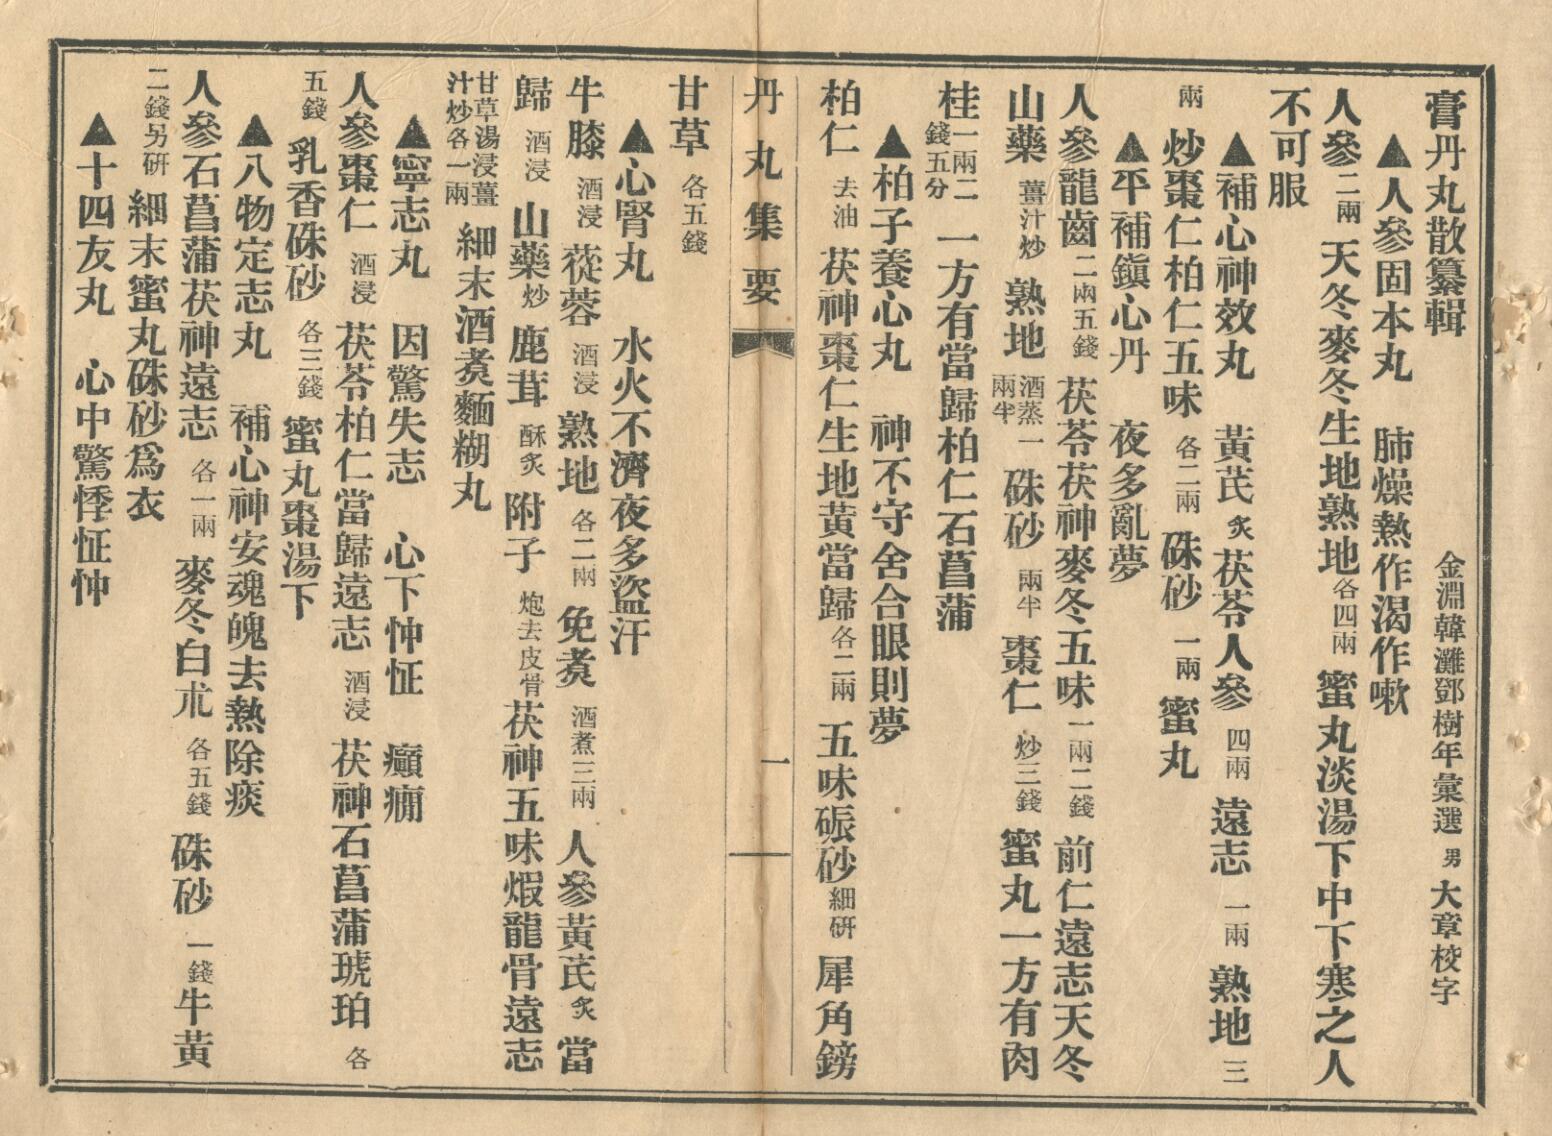 膏丹丸散纂輯　金淵韓灘鄧樹年彙選 男 大章校字
▲人參固本丸　肺燥熱作渴作嗽
人參二兩 天冬麥冬生地熟地各四兩 蜜丸淡湯下中下寒之人
不可服
▲補心神效丸　黃芪炙茯苓人參 四兩 遠志 一兩 熟地 三
兩 炒棗仁柏仁五味 各二兩 硃砂 一兩 蜜丸
▲平補鎮心丹　夜多亂夢
人參龍齒二兩五錢 茯苓茯神麥冬五味一兩二錢 前仁遠志天冬
山藥 薑汁炒 熟地 酒蒸一兩半 硃砂 兩半 棗仁 炒三錢 蜜丸一方有肉
桂一兩二錢五分 一方有當歸柏仁石菖蒲
▲柏子養心丸　神不守舍合眼則夢
柏仁 去油 茯神棗仁生地黃當歸各二兩 五味硍砂細研 犀角鎊
甘草 各五錢
丹丸集要　一
▲心腎丸　水火不濟夜多盜汗
牛膝 酒浸 蓯蓉 酒浸 熟地 各二兩 免煮 酒煮三兩 人參黃芪炙 當
歸 酒浸 山藥炒 鹿茸 酥炙 附子 炮去皮骨 茯神五味煆龍骨遠志
甘草湯浸薑汁炒各一兩 細末酒煮麵糊丸
▲寧志丸　因驚失志　心下忡怔　癲癇
人參棗仁 酒浸 茯苓柏仁當歸遠志 酒浸 茯神石菖蒲琥珀 各
五錢 乳香硃砂 各三錢 蜜丸棗湯下
▲八物定志丸　補心神安魂魄去熱除痰
人參石菖蒲茯神遠志 各一兩 麥冬白朮 各五錢 硃砂 一錢牛黃
二錢另研 細末蜜丸硃砂爲衣
▲十四友丸　心中驚悸怔忡